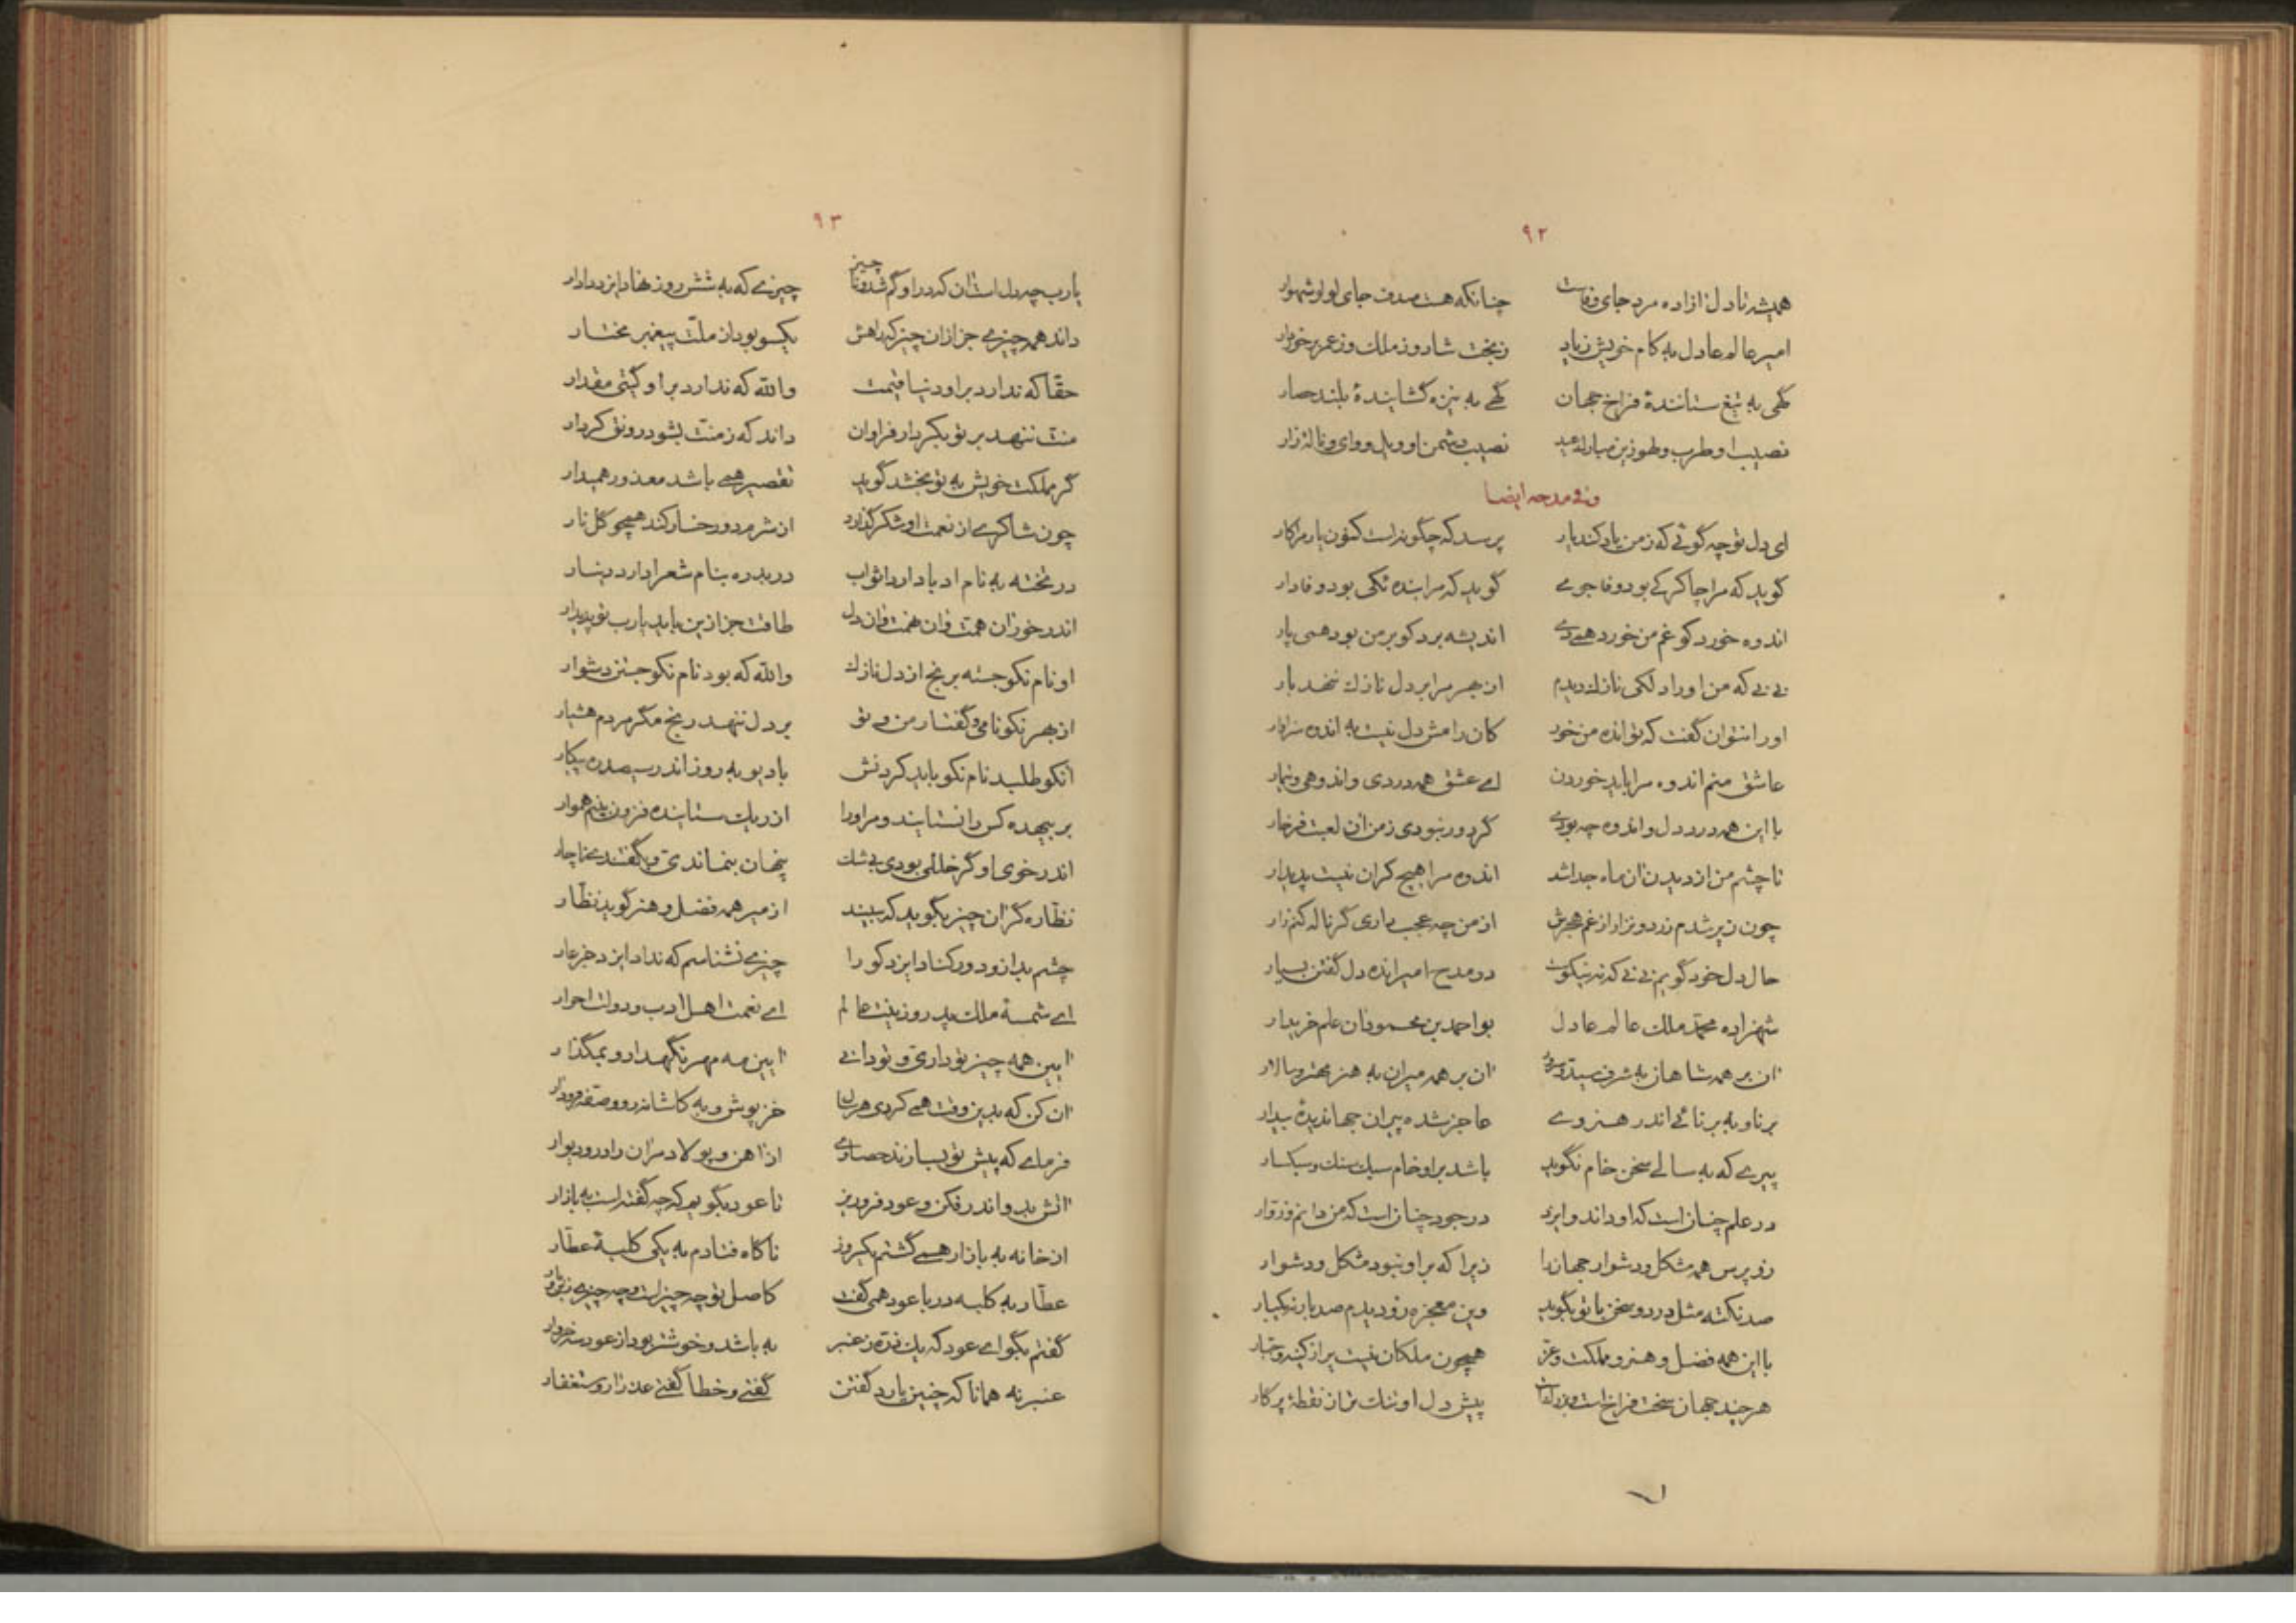 ۹۲
همیشه تا دل ازاده مرد جای وفاست چنانکه هست صدف جای لولو شهوار
امیر عالم عادل به کام خویش زیاد ز بخت شاد و ز ملک و ز عمر برخوردار
گهی به تیغ ستانندهٔ فراخ جهان گهی به نیزه گشایندهٔ بلند حصار
نصیب او طرب و لهو زین مبارک عید نصیب دشمن او ویل و وای و نالهٔ زار
و فی مدحه ایضا
ای دل تو چه گوئی که ز من یاد کند یار پرسد که چگونه است کنون یار مرا کار
گوید که مرا چاکرکی بود وفاجوی گوید که مرا بنده‌ٔکی بود وفادار
اندوه خورد کو غم من خورد همی دی اندیشه برد کو بر من بود همی پار
نی نی که من او را دلکی نازک دیدم از بهر مرا بر دل نازک ننهد بار
او را نتوان گفت که تو انده من خور کان رامش دل نیست به انده سزاوار
عاشق منم اندوه مرا باید خوردن ای عشق همه دردی و اندوهی و تیمار
با این همه درد دل و اندوه چه بودی گر دور نبودی ز من ان لعبت فرخار
تا چشم من از دیدن ان ماه جدا شد اندوه مرا هیچ کران نیست پدیدار
چون زیر شدم زرد و نزار از غم هجرش از من چه عجب داری گر ناله کنم زار
حال دل خود گویم نی نی که نه نیکوست در مدح امیر انده دل گفتن بسیار
شهزاده محمد ملک عالم عادل بواحمد بن محمود ان علم خریدار
ان بر همه شاهان به شرف سید و سرور ان بر همه میران به هنر مهتر و سالار
برنا و به برنائی اندر هنر وی عاجز شده پیران جهاندیدهٔ بیدار
پیری که به سالی سخن خام نگوید باشد بر او خام سبک سنک و سبکسار
در علم چنان است که او داند و ایزد در جود چنان است که من دانم و زوار
زو پرس همه مشکل و دشوار جهان را زیرا که بر او نبود مشکل و دشوار
صد نکته مثل در دو سخن با تو بگوید وین معجزه زو دیدم صد بار نه یکبار
با این همه فضل و هنر و مملکت و عز همچون ملکان نیست پر از کینه و جبار
هر چند جهان سخت فراخ است پیش دل او تنک‌تر از نقطهٔ پرگار
۹۳
یارب چه دل است ان که در او گم شد و ناچیز چیزی که به شش روز نهاد ایزد دادار
داند همه چیزی جز از ان چیز که راهش یکسو بود از ملت پیغمبر مختار
حقا که ندارد بر او دنیا قیمت والله که ندارد بر او گیتی مقدار
منت ننهد بر تو به کردار فراوان داند که ز منت بشود رونق کردار
گر مملکت خویش به تو بخشد گوید تقصیر همی باشد معذور همیدار
چون شاکری از نعمت او شکر گذارد از شرم دو رخسار کند همچو گل نار
در تخته به نام ادبا دارد اثواب در بدره بنام شعرا دارد دینار
اندر خور ان همت و ان همت و ان دل طاقت جز ازین باید یارب تو پدید ار
او نام نکو جسته به رنج از دل نازک والله که بود نام نکو جستن دشوار
از بهر نکو نامی و گفتار من و تو بر دل ننهد رنج مگر مردم هشیار
انکو طلبد نام نکو باید کردنش با دیو به روز اندر سیصد ره پیکار
بر بیهده کس را نستایند و مر او را از ریک ستاینده فزون بینم هموار
اندر خوی او گر خللی بودی بی شک پنهان بنماندی و بگفتندی ناچار
نظاره گر ان چیز بگوید که ببیند از میر همه فضل و هنر گوید نظار
چشم بد از و دور کناد ایزد کو را چیزی نشناسم که نداد ایزد جز عار
ای شمسهٔ ملک پدر و زینت عالم ای نعمت اهل ادب و دولت احرار
ایین همه چیز تو داری و تو دانی ایین مه مهر نگهدار و بمگذار
ان کن که بدین وقت همی کردی هر سال خز پوش و به کاشانه رو و صفه فرود ار
فرمای که پیش تو بسازند حصاری از اهن و پولاد مر ان را در و دیوار
اتش بدو اندر فکن و عود فرو ریز تا عود بگویم که چه گفته است به بازار
از خانه به بازار همی گشتم یکروز ناگاه فتادم به یکی کلبهٔ عطار
عطار به کلبه در با عود همی گفت کاصل تو چه چیز است و چه چیزی
گفتم بگو ای عود که یک ذره ز عنبر به باشد و خوشتر بود از عود سه خروار
عنبر نه همانا که چنین یارد گفتن گفتی و خطا گفتی عذر ار و ستغفار